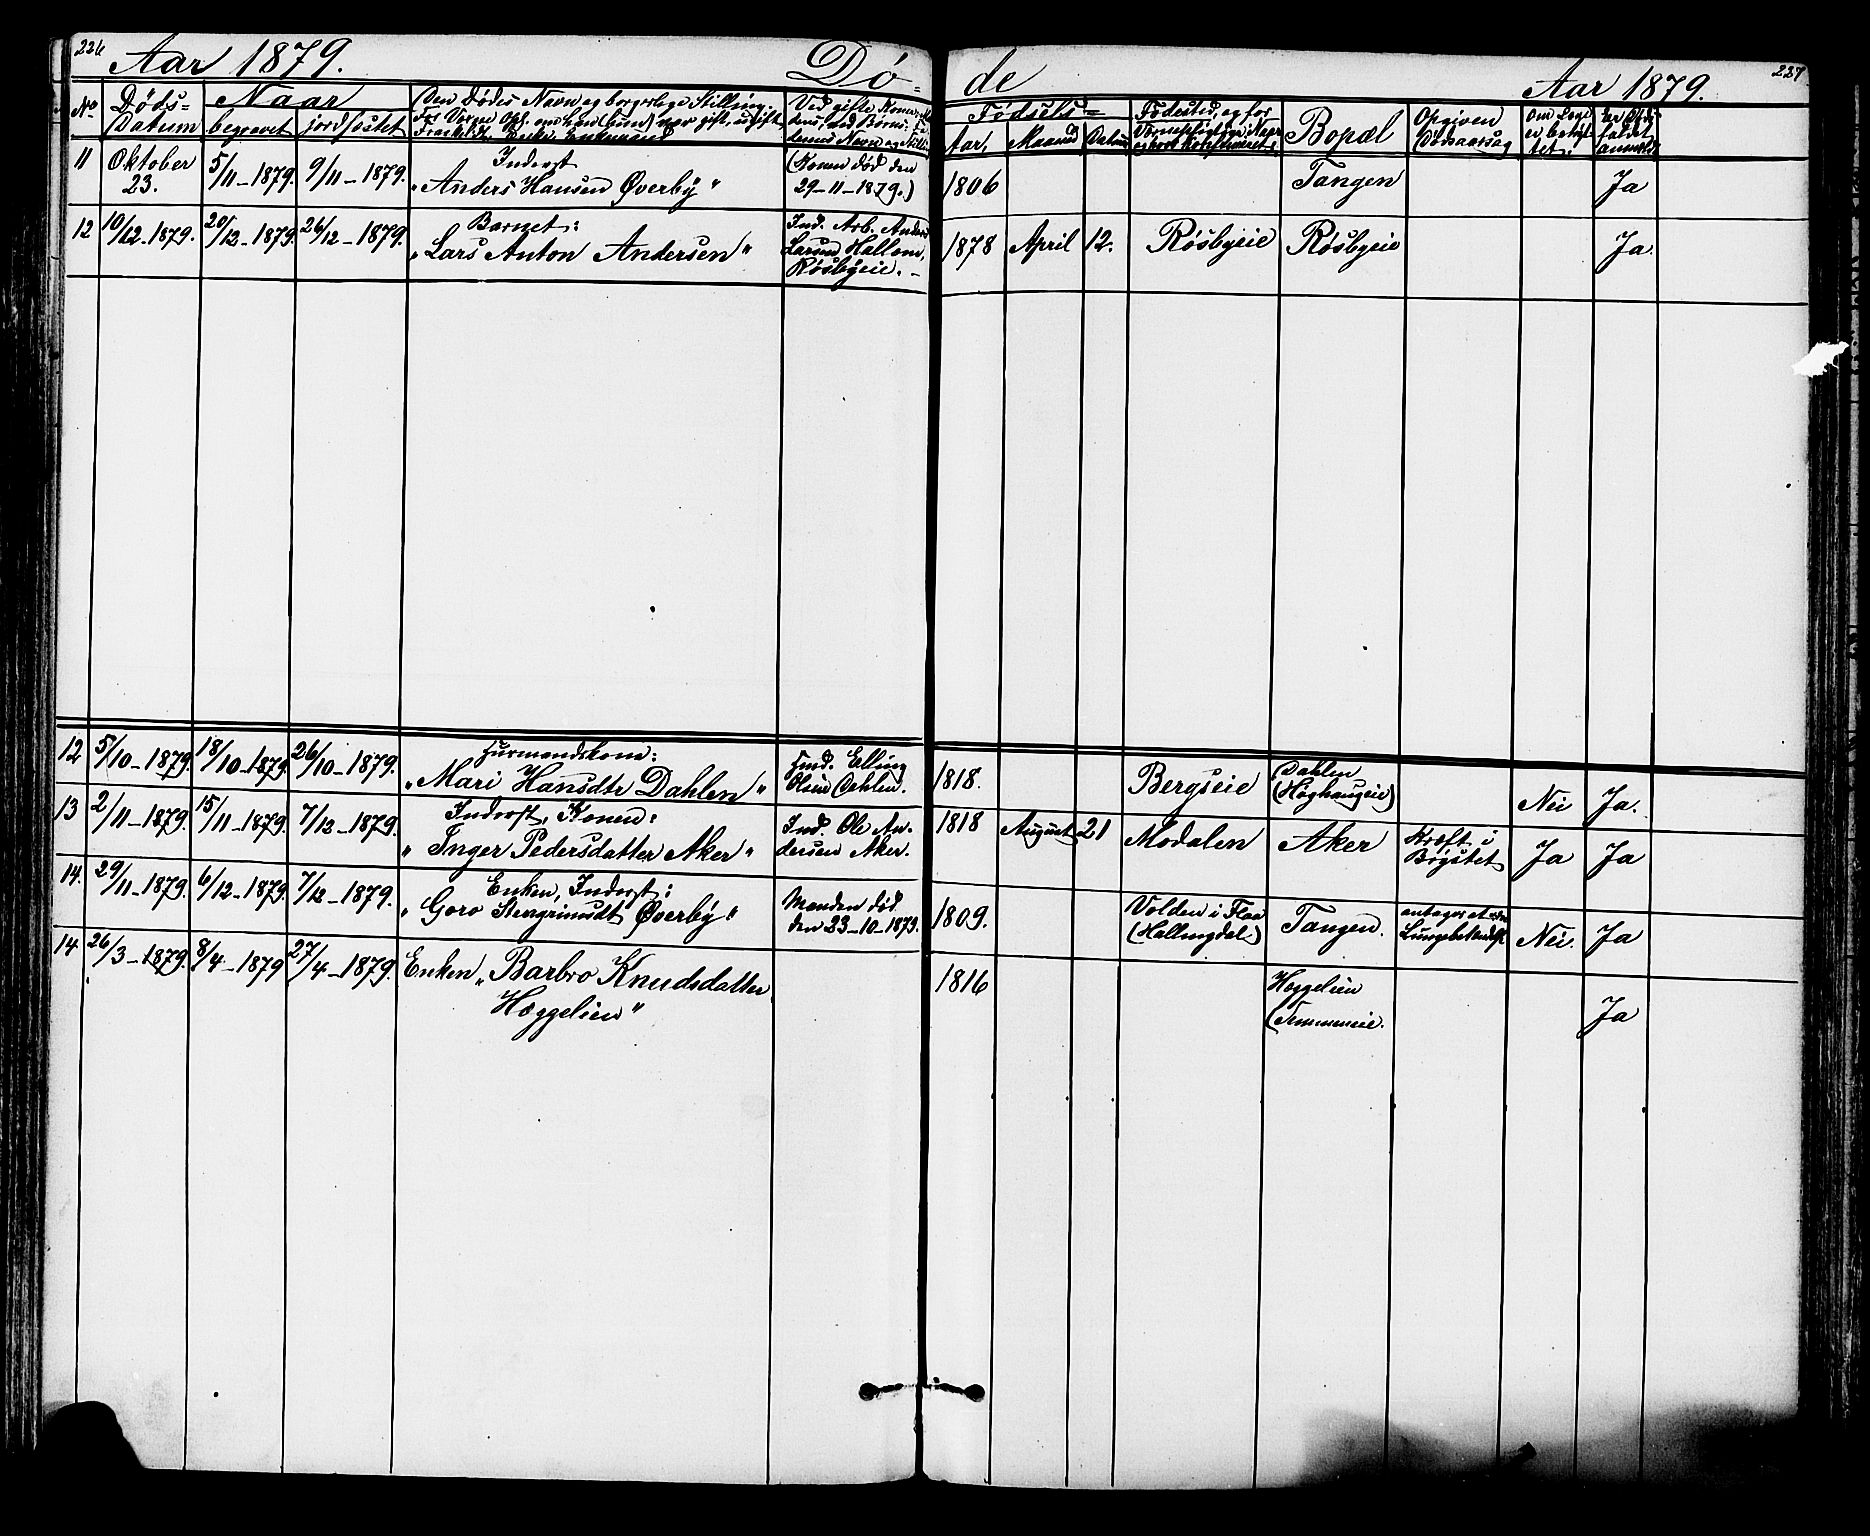 226 Aar 1879. Dø- de Aar 1879. 227
No Døds- Datum Naar begravet jordfæstet Den Dødes Navn og borgerlige Stilling. Ved gifte Fødsels- Aar, Maaned Datum Fødested, og for Bopæl Opgiven Dødsaarsag Om Læge er benyttet. Er Dødsfaldet anmeldt
11 Oktober 23. 5/11-1879. 9/11-1879. Inderst
„Anders Hansen Øverby" (Konen død den
29-11-1879.) 1806 Tangen Ja
12 10/12-1879. 20/12-1879. 26/12-1879. Barnet:
„Lars Anton Andersen" Ind. Arb. Anders
Larsen Hallom,
Røsbyeie. 1878 April 12. Røsbyeie Røsbyeie Ja.
12 5/10-1879. 18/10-1879. 26/10-1879. Husmandskone:
„Mari Hansdtr Dahlen" Hmd. Elling
Olsen Dehlen. 1818. Bergseie Dahlen
(Høghaugeie) Nei Ja.
13 2/11-1879. 15/11-1879. 7/12-1879. Inderst, Konen:
„Inger Pedersdatter Aker" Ind. Ole An-
dersen Aker. 1818 August 21 Modalen Aker Kræft i
Brystet Ja Ja
14. 29/11-1879. 6/12-1879. 7/12-1879. Enken, Inderst:
„Goro Stengrimsdt Øverby" Manden død
den 23-10-1879. 1809. Volden i Flaa
(Hallingdal) Tangen. antages at være
Lungebetændelse Nei. Ja
14. 26/3-1879. 8/4-1879 27/4-1879. Enken „Barbro Knudsdatter
Hæggelien" 1816 Hæggelien Ja